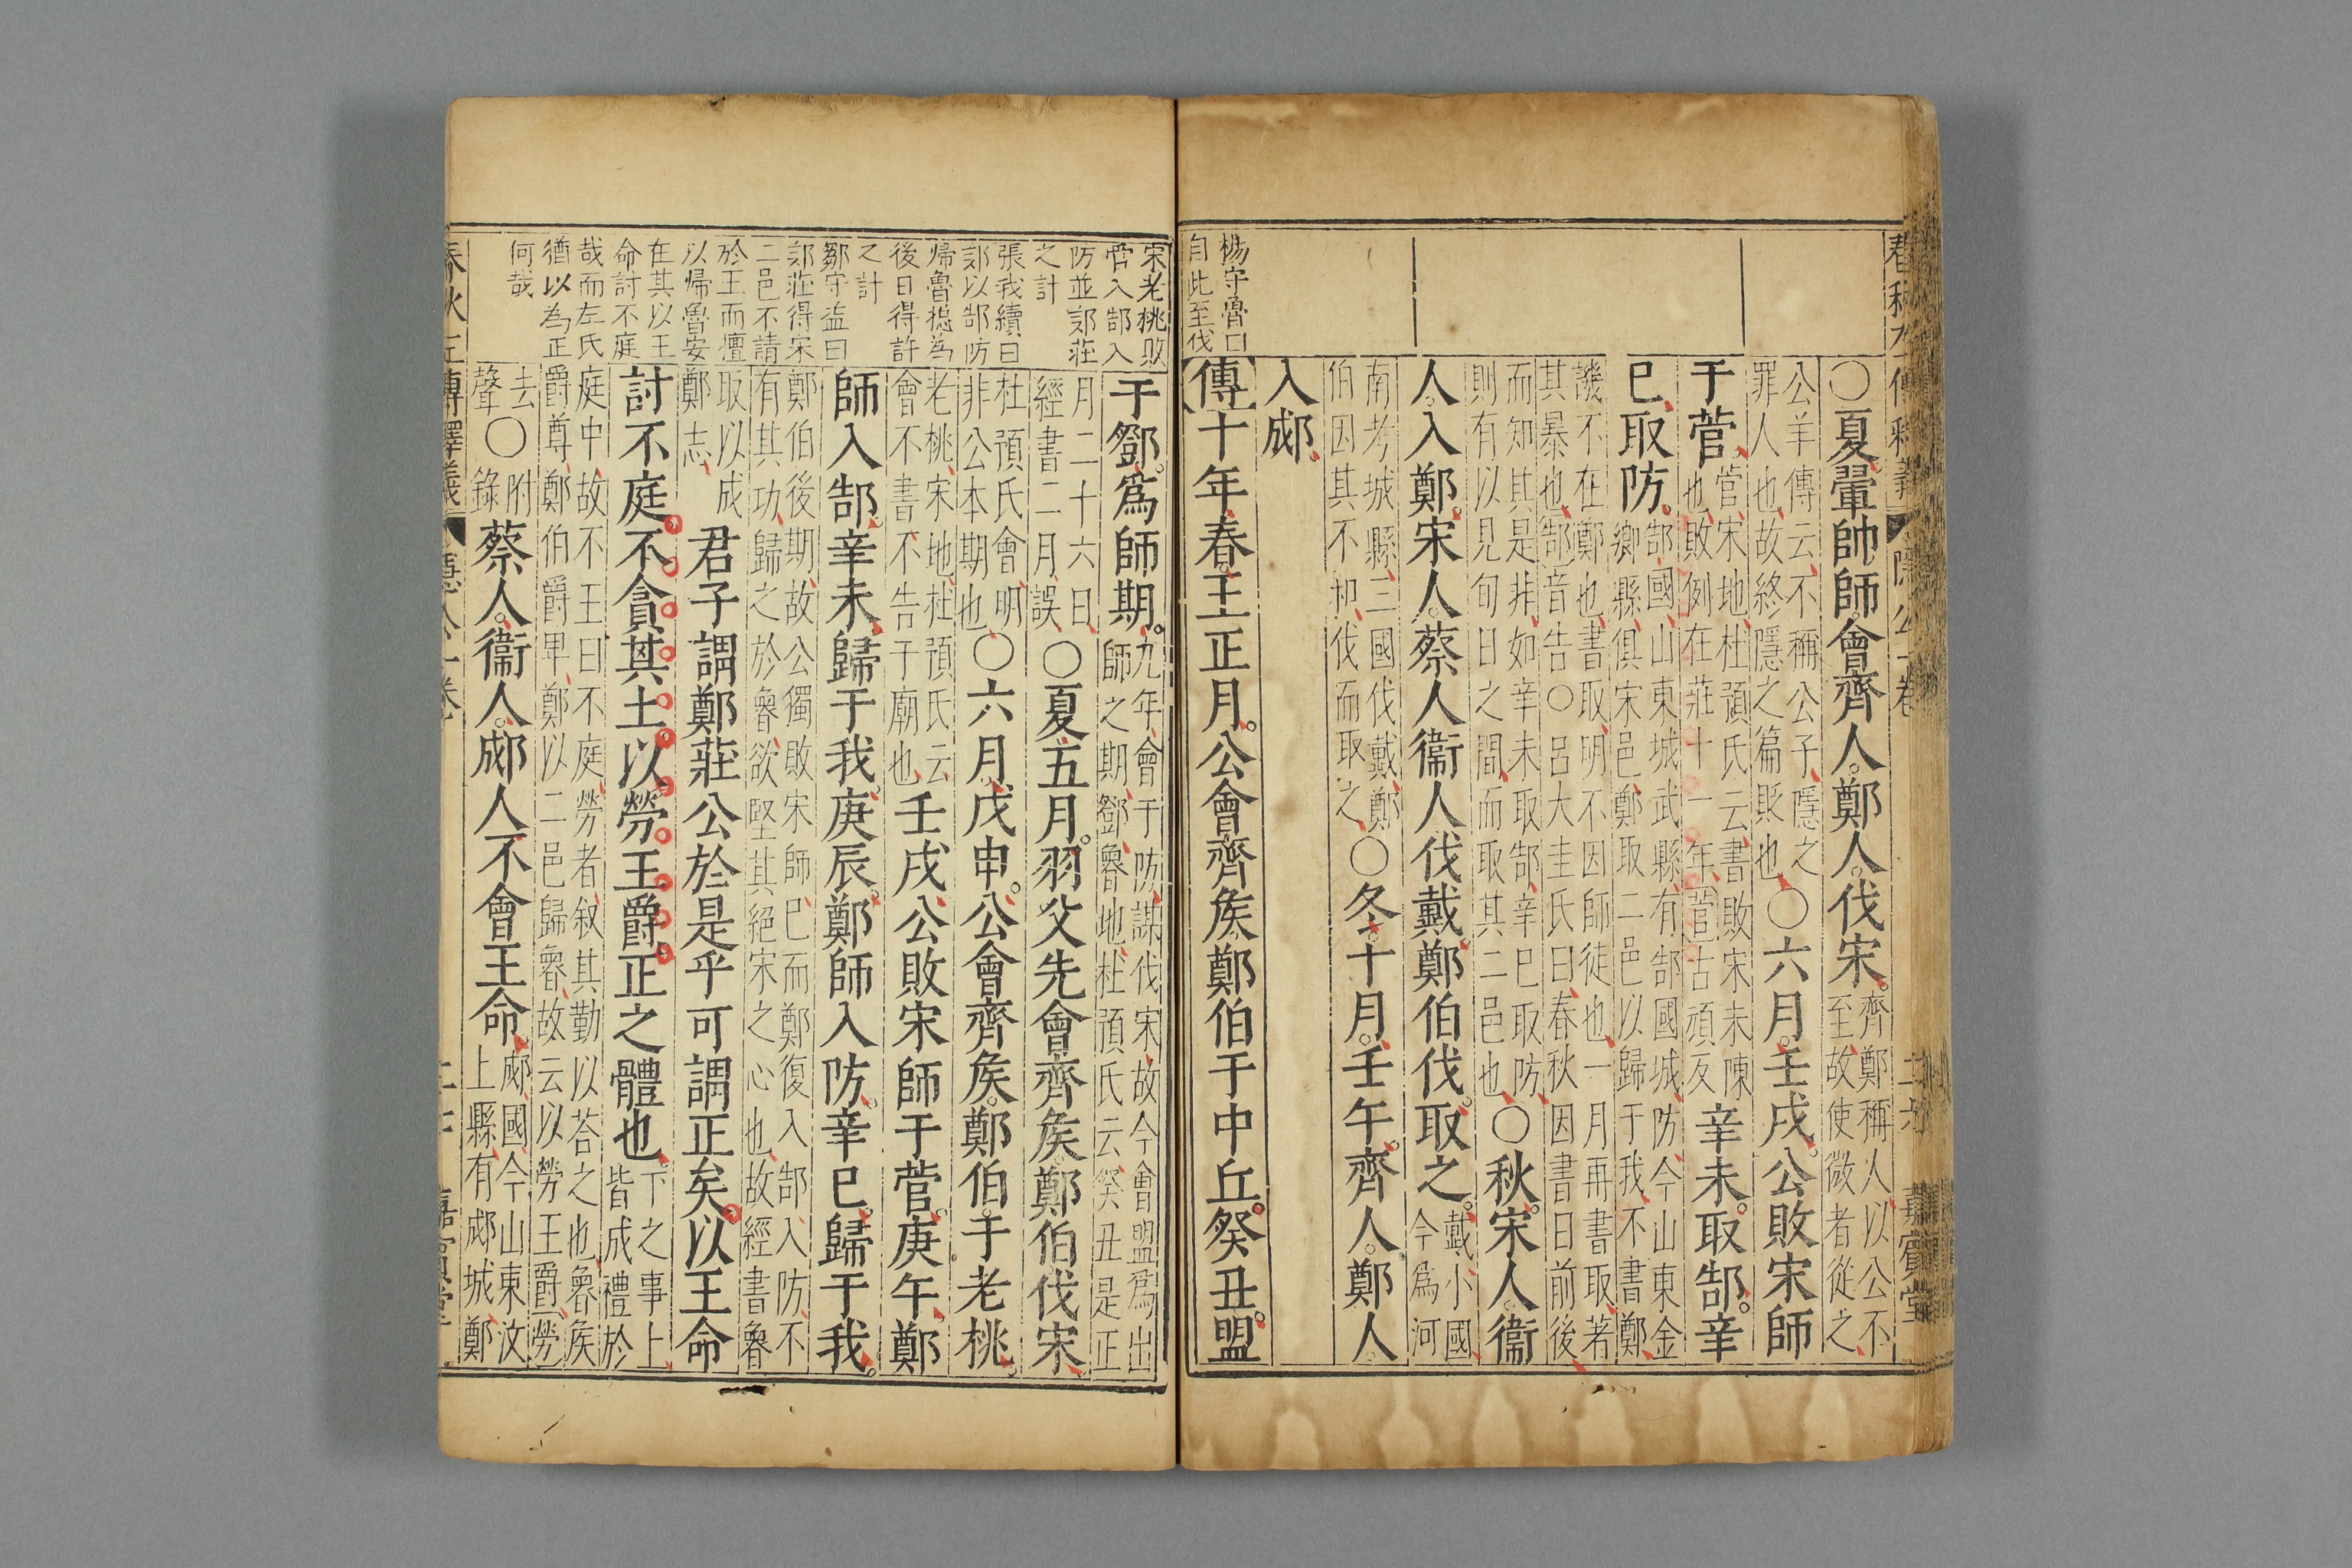 春秋左傳釋義 隱公一卷 二六 嘉賓堂
〇夏翬帥師會齊人鄭人伐宋齊鄭稱人以公不至故使微者從之
公羊傳云不稱公子隱之罪人也故終隱之篇貶也〇六月壬戌公敗宋師
于菅菅宋地杜預氏云書敗宋未陳也敗例在莊十一年菅古頑反辛未取郜辛
巳取防郜國山東城武縣有郜國城防今山東金鄉縣俱宋邑鄭取二邑以歸于我不書鄭
譏不在鄭也書取明不因師徒也一月再書取著其暴也郜音告〇呂大圭氏曰春秋因書日前後
而知其是非如辛未取郜辛巳取防則有以見旬日之間而取其二邑也〇秋宋人衞
人入鄭宋人蔡人衞人伐戴鄭伯伐取之戴小國今爲河
南考城縣三國伐戴鄭伯因其不和伐而取之〇冬十月壬午齊人鄭人
入郕
傳十年春王正月公會齊矦鄭伯于中丘癸丑盟
楊守魯曰
自此至伐
宋老桃敗
菅入郜入
防並鄭莊
之計
張我續曰
鄭以郜防
歸魯揔為
後日得許
之計
鄒守益曰
鄭莊得宋
二邑不請
於王而擅
以歸魯安
在其以王
命討不庭
哉而左氏
猶以為正
何哉
于鄧爲師期九年會于防謀伐宋故今會盟爲出師之期鄧魯地杜預氏云癸丑是正
月二十六日經書二月誤〇夏五月羽父先會齊矦鄭伯伐宋
杜預氏會明非公本期也〇六月戊申公會齊矦鄭伯于老桃
老桃宋地杜預氏云會不書不告于廟也壬戌公敗宋師于菅庚午鄭
師入郜辛未歸于我庚辰鄭師入防辛巳歸于我
鄭伯後期故公獨敗宋師巳而鄭復入郜入防不有其功歸之於魯欲堅其絕宋之心也故經書魯
取以成鄭志君子謂鄭莊公於是乎可謂正矣以王命
討不庭不貪其土以勞王爵正之體也下之事上皆成禮於
庭中故不王曰不庭勞者叙其勤以荅之也魯矦爵尊鄭伯爵卑鄭以二邑歸魯故云以勞王爵勞
去聲〇附錄蔡人衞人郕人不會王命郕國今山東汶上縣有郕城鄭
春秋左傳釋義 隱公一卷 嘉賓堂